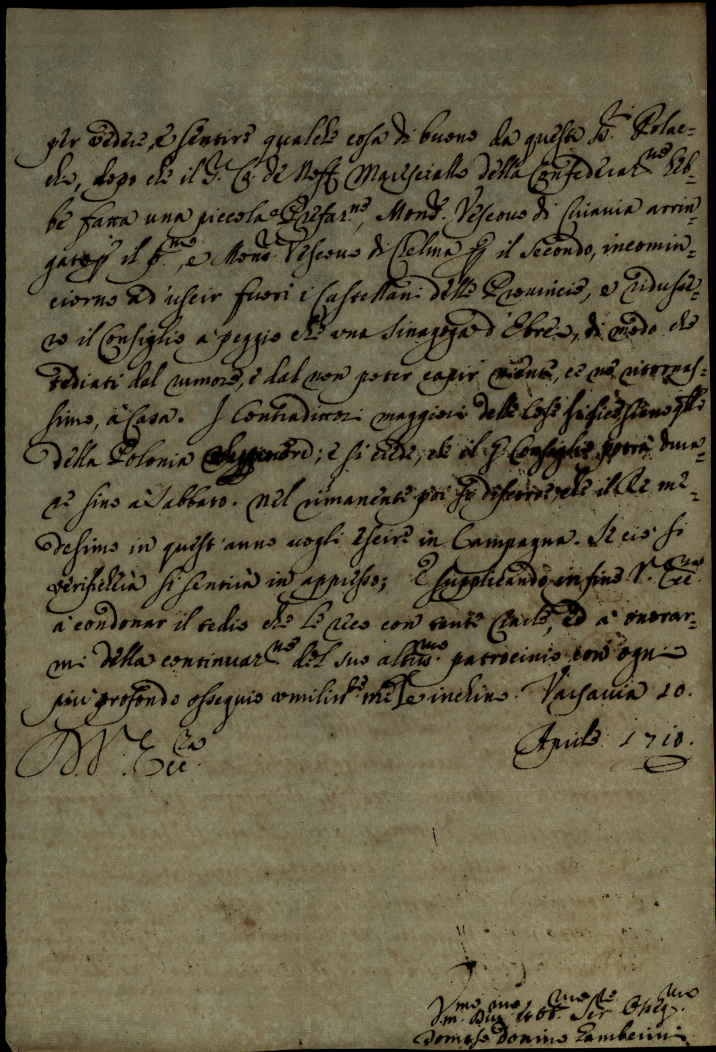 per vedere, e sentire qualche cosa di buono da queste Sri. Polac-
che, dopo che il Sr. Co. de Noff Maresciallo della Confederatne heb-
be fatta una piccola Prefatne, Monsr. Vescovo di Cuiavia arrin-
gato p il pmo, e Monsr. Vescovo di Chelma p il secondo, incomin-
ciorno ad uscir fuori i Castellani delle Provincie, e ridusse-
ro il Consiglio a peggio che una Sinagoga d'Ebrei, di modo che
tediati dal rumore, e dal non poter capir niente, ce ne ritornas-
simo, à Casa. I Contradittori maggiori delle Cose
della Polonia ; e si crede, che il Consiglio potrà dura-
re sino à Sabbato. Nel rimanente poi si discorre, che il Re me-
desimo in quest'anno vogli uscire in Campagna. Se ciò si
verificherà si sentirà in appresso; E supplicando in fine V. Ecca.
à condonar il tedio che le reco con tante Ciarle, ed à onorar-
mi della continuatne del suo altmo. patrocinio con ogni
più profondo ossequio umilismte. me le inchino. Varsavia 10.
D. V. Ecca. Aprile 1710.
Vmo. mo, Dev. et Obb. Ser. Osseqmo
Domino Zamberini